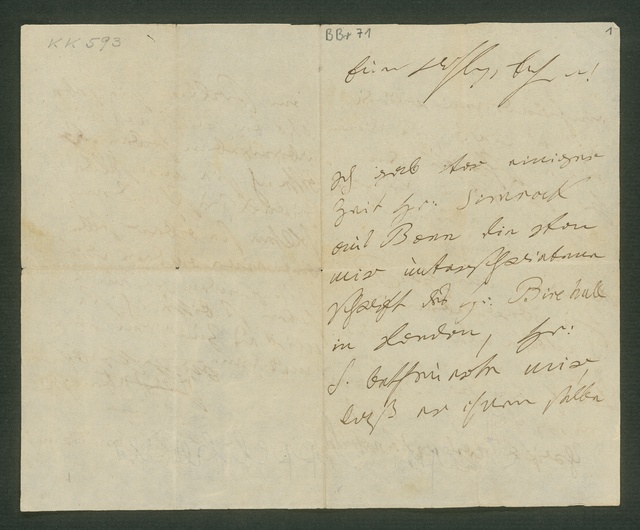 KK 593
BBr 71
1
Euer Wohlgebohrn!
Ich gab vor einiger
Zeit Hr: Simrock
aus Bonn die von
mir unterschriebene
schrift des Hr. Birchall
in London, Hr:
S. betheuerte mir,
daß er ihnen selbe